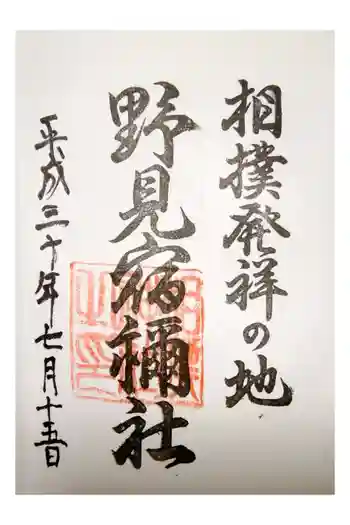 相撲発祥の地
野見宿禰社
平成三十年七月十五日